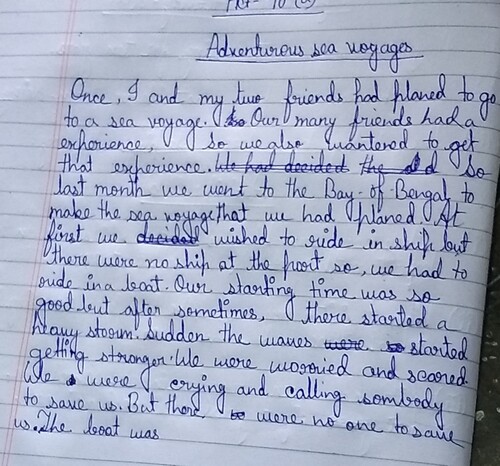 Adventurous sea voyages
Once, I and my two friends had planed to go
to a sea voyage. Our many friends had a
experience, so we also wantered to get
that experience. We had decided the So
last month we went to the Bay-of-Bengal to
make the sea voyage that we had planed. At
first we decided wished to ride in ship but
there were no ship at the port so, we had to
ride in a boat. Our starting time was so
good but after sometimes, there started a
heavy storm. Sudden the waves were so started
getting stronger. We were worried and scared.
We were crying and calling sombody
to save us. But there were no one to save
us. The boat was